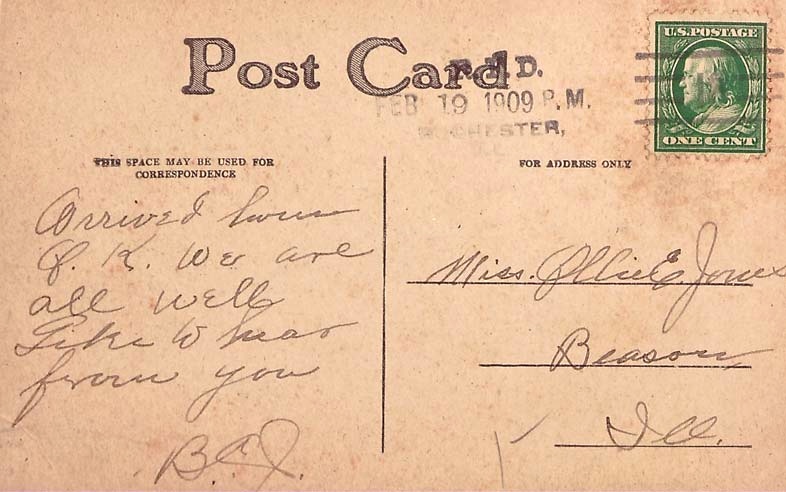 Post Card
R.F.D.
FEB 19 1909 P.M.
CHESTER,
U.S. POSTAGE
ONE CENT
THIS SPACE MAY BE USED FOR
CORRESPONDENCE
FOR ADDRESS ONLY
Arrived home
O.K. We are
all well
Like to hear
from you
B.C.J.
Miss. Ollie E. Jones
Beason
Ill.